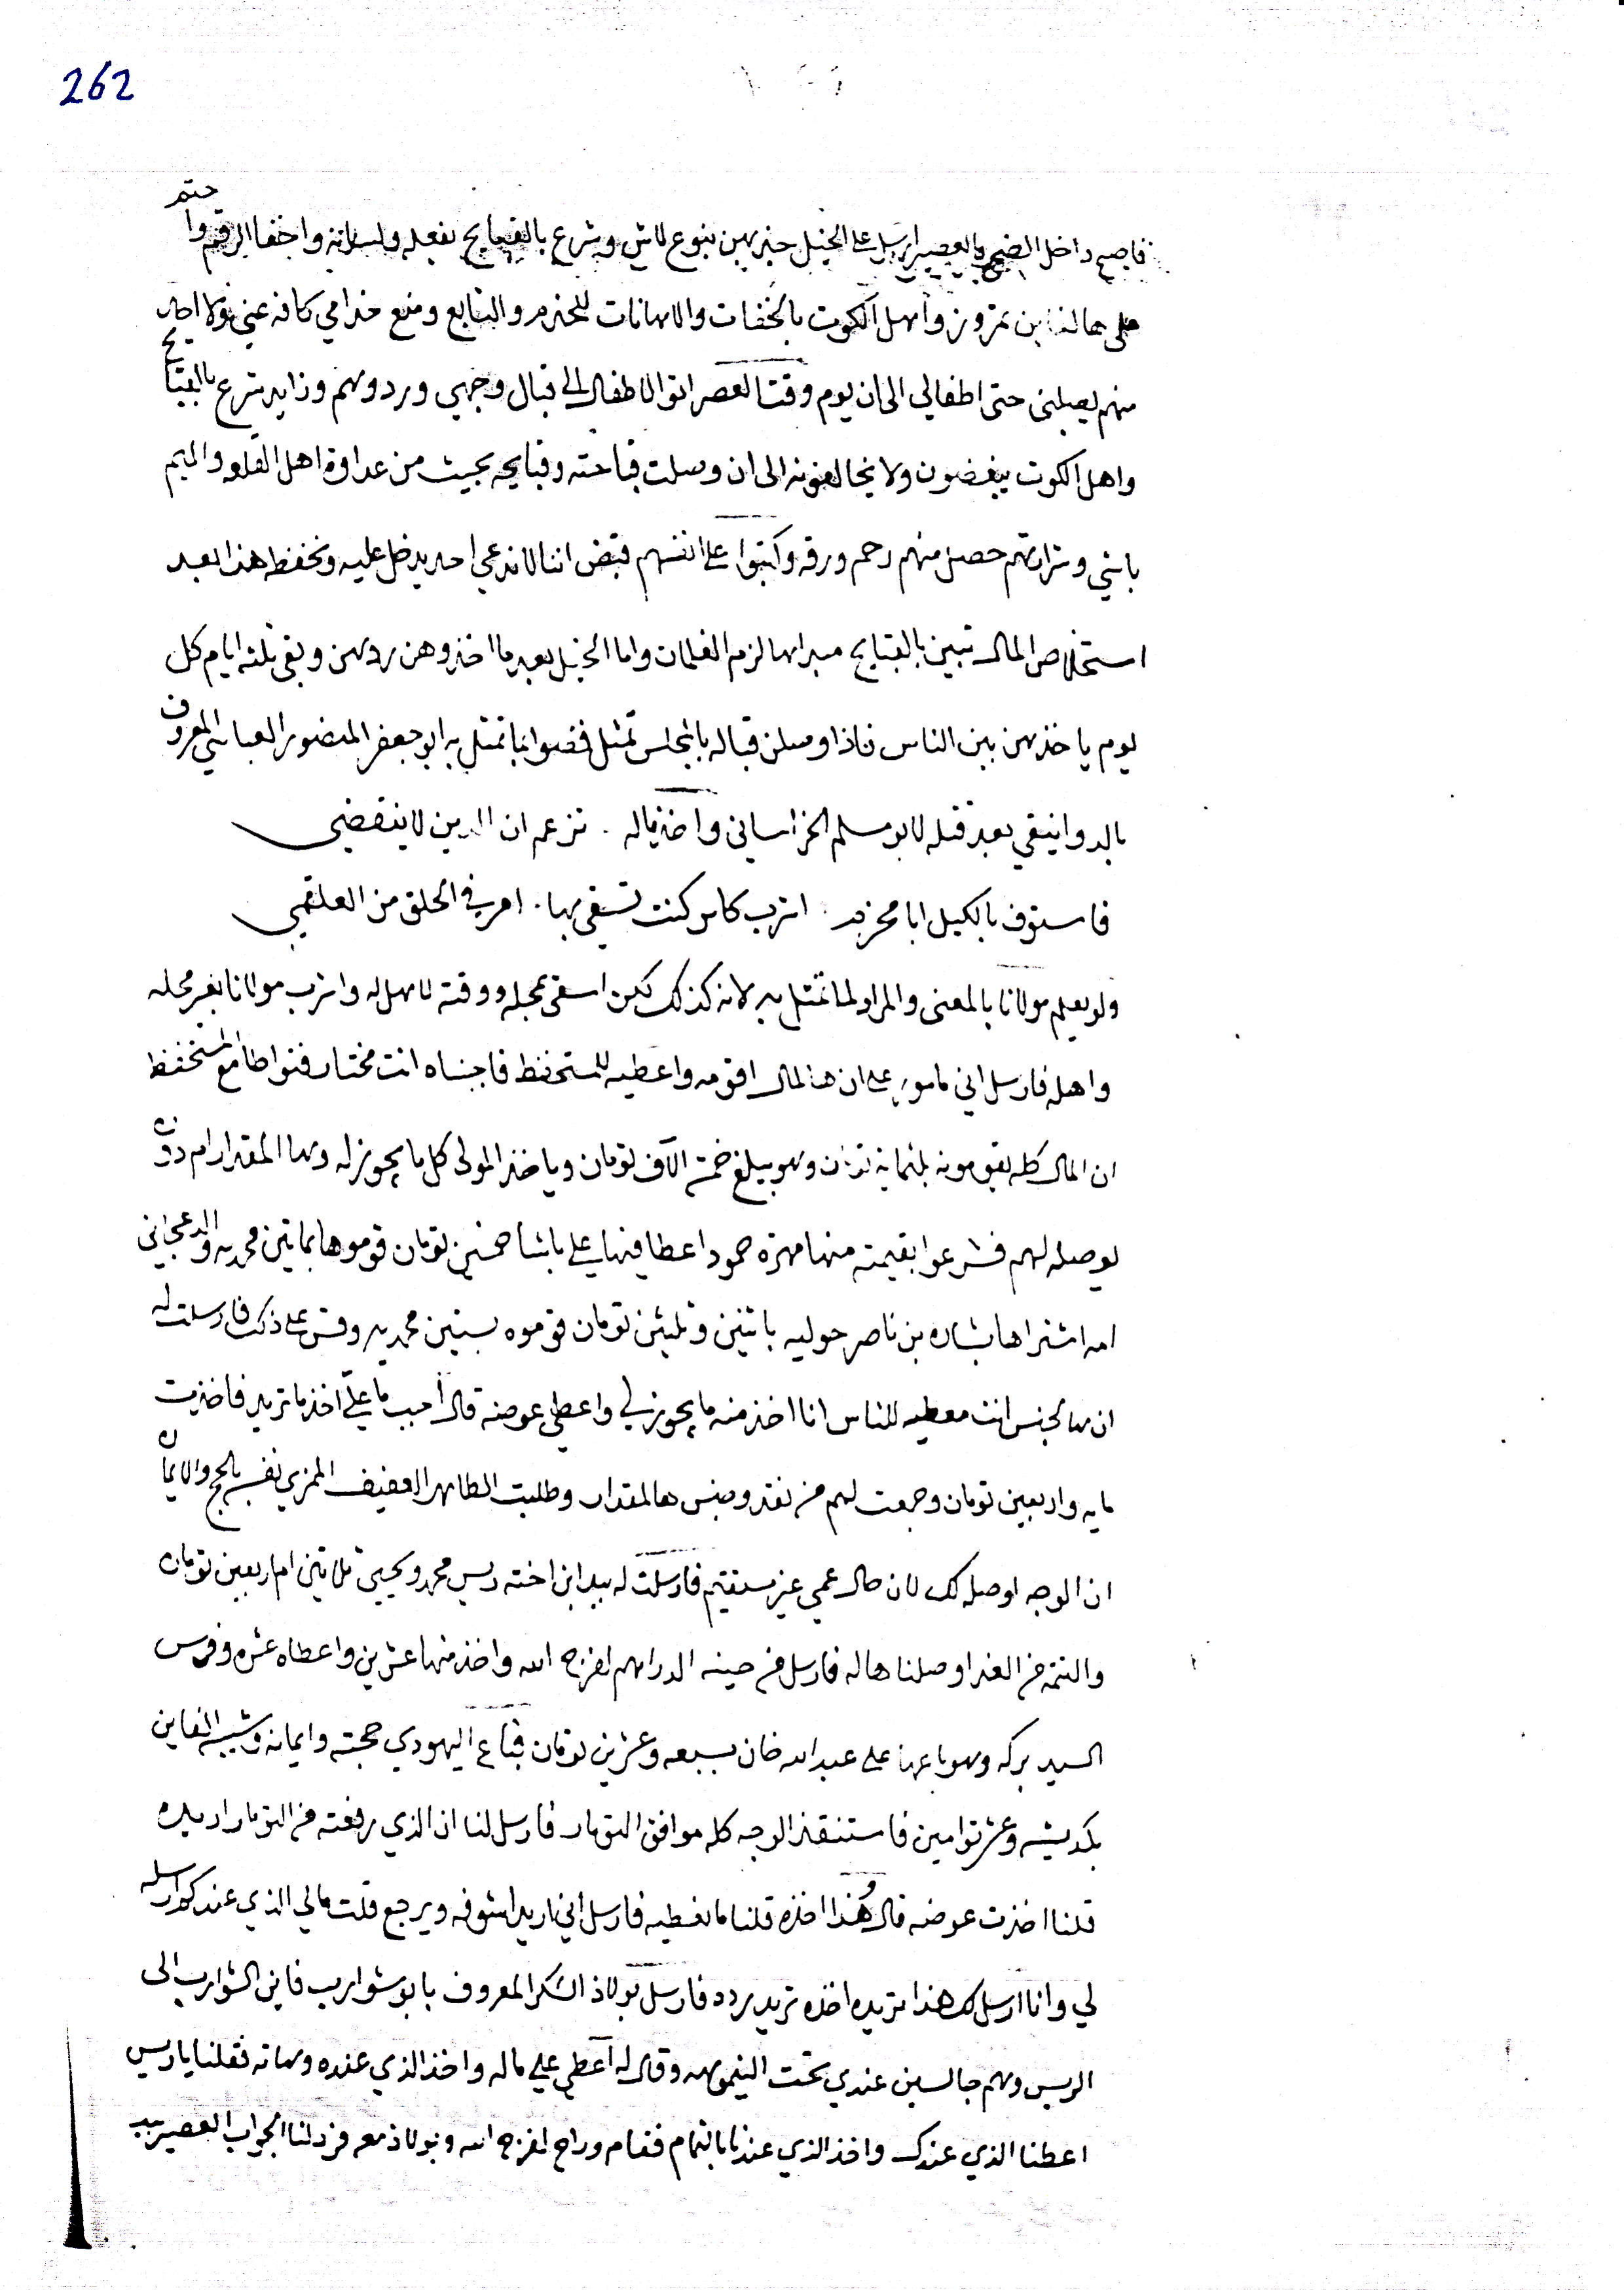 262
فاصبح داخل الضبح وبالعصير ارسل على الخيل جنريهن بنوع لاش وشرع بالقبايح بفعله ولسانه واخفا الرقم وا حتم
على هالفاين تمروز واهل الكوت بالخفات والاهانات للخدم والتابع ومنع خدامي كافه عني ولا احد
منهم يصلني حتى اطفالي الى ان يوم وقت العصر اتوا الاطفال الى قبال وجهي وردوهم وزايد شرع بالقبايح
واهل الكوت يبغضون ولا يخالفونه الى ان وصلت قباحته وقبايحه بحيث من عداوة اهل القلعه والميم
باشي وشرارتهم حصل منهم رحم ورقه وكتبوا على انفسهم قبض اننا لا ندعي احد يدخل عليه ونحفظ هذا بعد
استخلاص المال تبين بالقبايح مبداها لزم الغلمان واما الخيل بعد ما اخذوهن ردهن وبقي ثلثه ايام كل
يوم ياخذهن بين الناس فاذا وصلن قباله بالمجلس تمثل فضوا بما تمثل به ابو جعفر المنصور العباسي المعروف
بالدوانيقي بعد قتله لابو مسلم الخراساني واخذ ماله . تزعم ان الدين لا ينقضي
فاستوف بالكيل ابا مجرم . اشرب بكاس كنت تسقي بها . امر في الحلق من العلقم
ولو يعلم مولانا بالمعنى والمراد لما تمثل به لانه كذلك لكن اسقي بمحله ووقته لاهل له واشرب مولانا بغير محله
واهله فارسل اني مامور على ان هالمال اقومه واعطيه للمستحفظ فاجبناه انت مختار فتواطا مع المستحفظ
ان المال كله يقومونه بثمانيه تومان وهو يبلغ خمسة الاف تومان وياخذ المولى كل ما يجوز له وهالمقدار ام ذون
يوصله لهم فشرعوا بقيمته منها مهرة حمود اعطا فيها علي باشا خمسين تومان قوموها بمايتين محمديه والدعجاني
امه اشتراها بشاره بن ناصر حوليه باثنين وثلثين تومان قوموه بستين محمديه وقس على ذلك فارسلت له
ان هالجنس انت معطيه للناس انا اخذ منه ما يجوز لي واعطي عوضه قال احب ما علي اخذ ما تريد فاخذت
مايه واربعين تومان وجمعت لهم من نقد وجنس هالمقدار وطلبت الطاهر العفيف المزي نفسه بالحج والايمان
ان الوجه اوصله لك لان حال عمي غير مستقيم فارسلت له بيد ابن اخته ريس محمد ويحيى ثلاثين ام اربعين تومان
والتتمه من الغد اوصلناها له فارسل من حينه الدراهم لفرج الله واخذ منها عشرين واعطاه عشره وفرس
السيد بركه وهو باعها على عبد الله خان بسبعه وعشرين تومان فباع اليهودي حجته وايمانه وشيبه الفاين
بكديشه وعشر توامين فاستنقذ الوجه كله موافق التومار فارسل لنا ان الذي رفعته من التومار اريده
قلنا اخذت عوضه قال وهذا اخذه قلنا ما نعطيه فارسل اني اريد اشوفه ويرجع قلت مالي الذي عندكم ارسله
لي وانا ارسل لك هذا تريده اخذه تريد بردد فارسل بولاذ الشكر المعروف بابو شوارب فاين الشوارب الى
الريس وهم جالسين عندي تحت النيموهه وقال له اعطي علي ماله واخذ الذي عنده وهاته فقلنا يا ريس
اعطنا الذي عندك واخذ الذي عندنا بالتمام فقام وراح لفرج الله وبولاذ معه فرد لنا الجواب العصير بيد